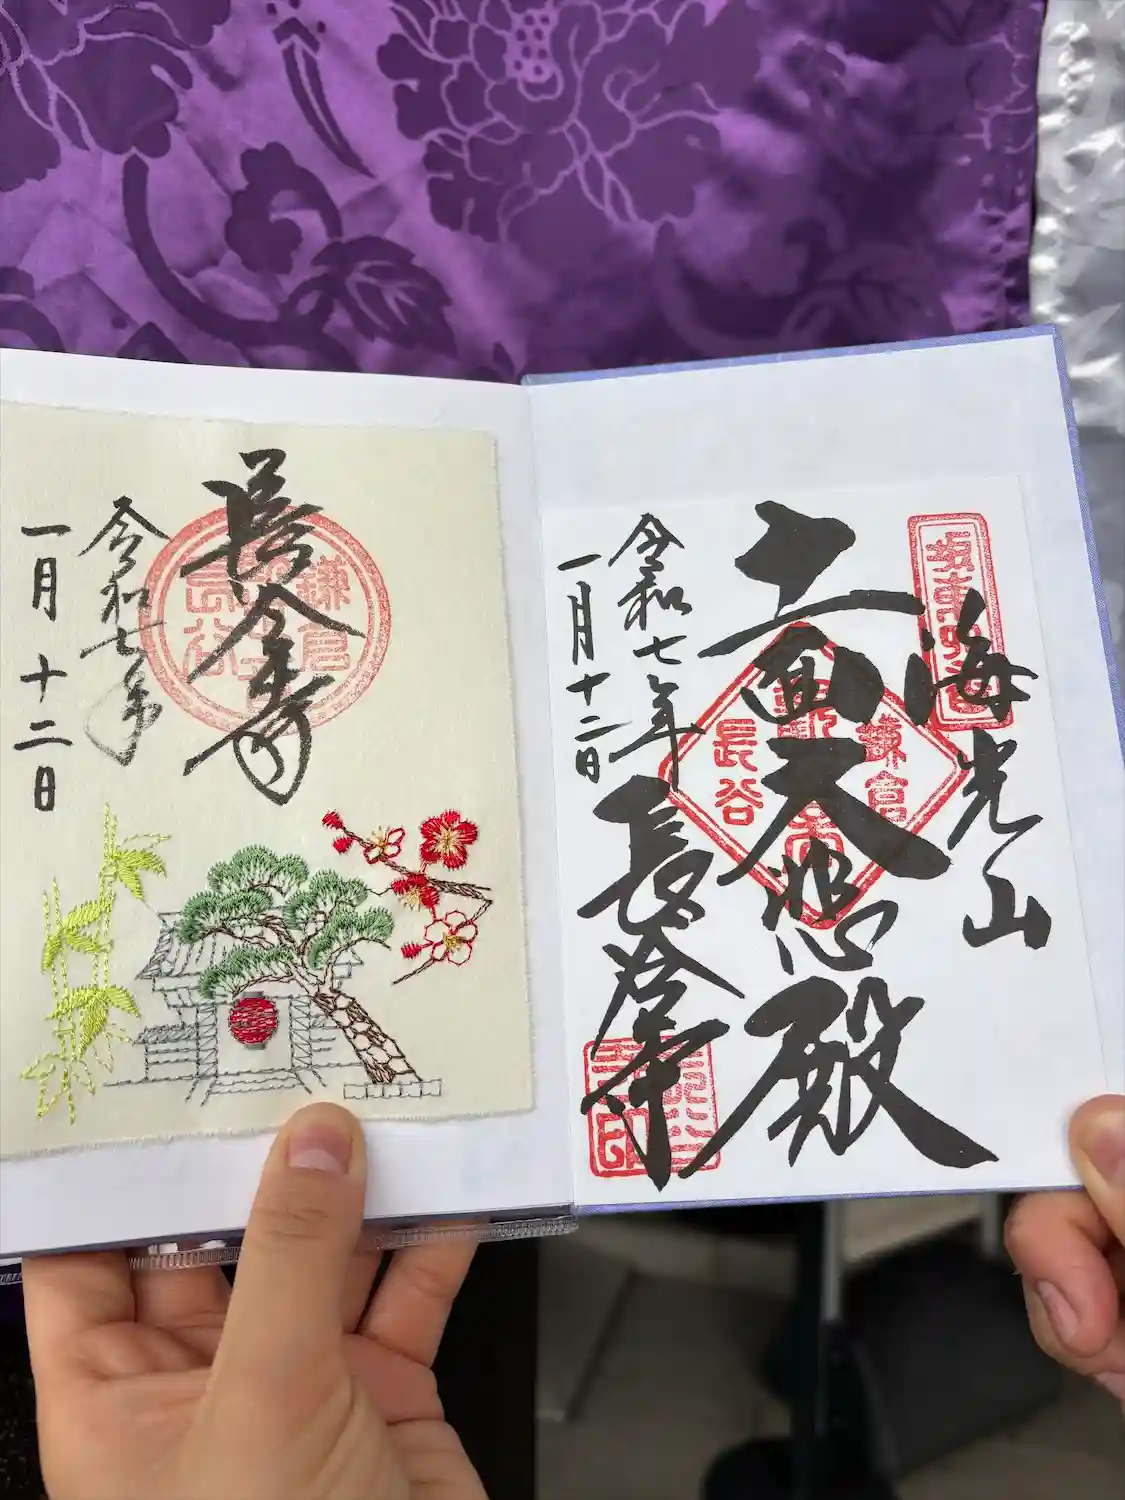 坂東
海光山
十一面大悲殿
鎌倉
長谷
令和七年
一月十二日
長谷寺
長谷寺
鎌倉
長谷
令和七年
一月十二日